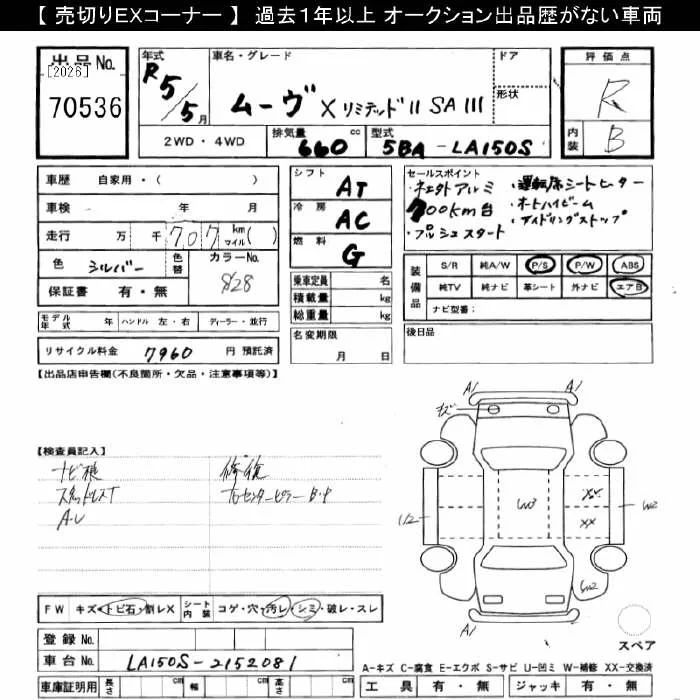 【 売切りEXコーナー 】 過去１年以上 オークション出品歴がない車両
出品No.
[2026]
70536
年式
R5/5月
車名・グレード
ムーヴ X リミテッドII SAIII
ドア
形状
2WD・4WD
排気量 660 cc
型式 5BA-LA150S
評価点
R
内装 B
車歴 自家用・( )
車検 年 月
走行 万 千 707 km マイル( )
色 シルバー 色替 カラーNo. S28
保証書 有・無
シフト AT
冷房 AC
燃料 G
乗車定員 名
積載量 kg
総重量 kg
セールスポイント
・社外アルミ ・運転席シートヒーター
700km台 ・オートハイビーム
・プッシュスタート ・アイドリングストップ
装備品
S/R 純A/W P/S P/W ABS
純TV 純ナビ 革シート 外ナビ エアB
ナビ型番:
モデル年式 年 ハンドル 左・右 ディーラー・並行
名変期限 月 日
後日品
リサイクル料金 7960 円 預託済
【出品店申告欄(不良箇所・欠品・注意事項等)】
A1 A1
キズ
【検査員記入】
ナビ穂 修復
スタッドレスT 右センターピラー B・P
A-U
U2 W3 XX W2
XX
W2
A1
FW キズ・トビ石・割レX シート内装 コゲ・穴・汚レ・シミ・破レ・スレ
スペア
登録No.
車台No. LA150S-2152081
A-キズ C-腐食 E-エクボ S-サビ U-凹ミ W-補修 XX-交換済
車庫証明用 長さ cm 幅 cm 高さ cm 工具 有・無 ジャッキ 有・無